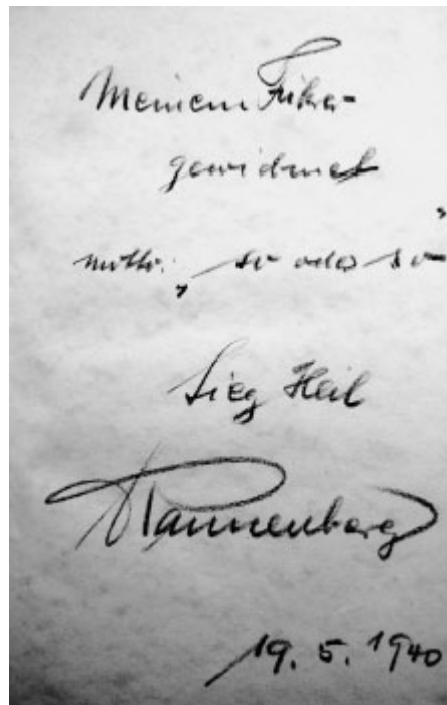 Meinem Führer
gewidmet
motto: „so oder so"
Sieg Heil
Pannenborg
19. 5. 1940